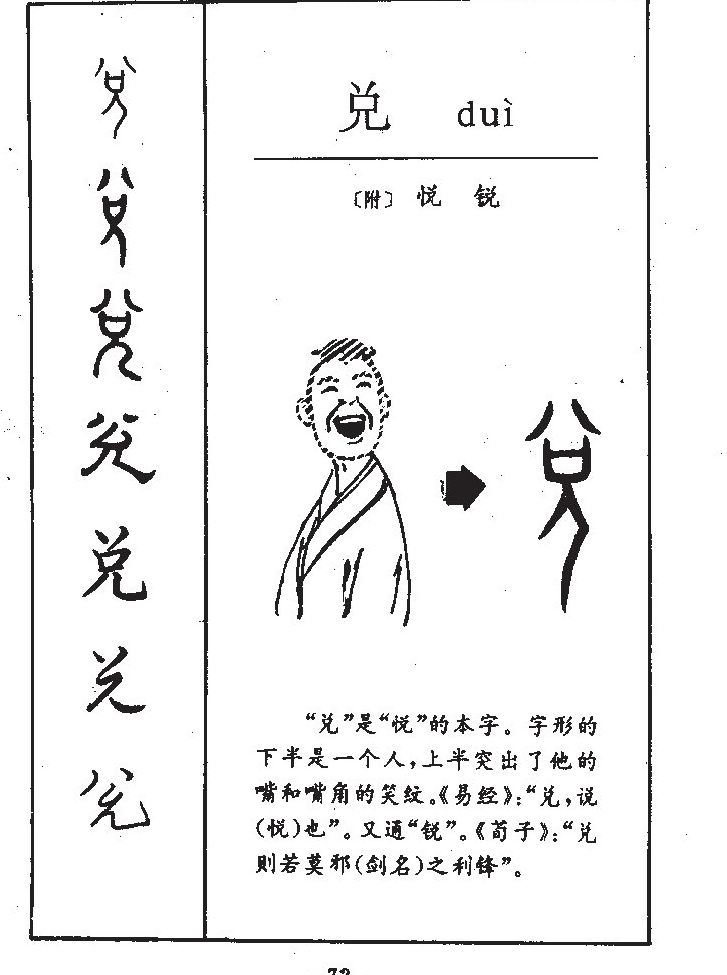 兑 duì
〔附〕 悦 锐
“兑”是“悦”的本字。字形的
下半是一个人，上半突出了他的
嘴和嘴角的笑纹。《易经》：“兑，说
（悦）也”。又通“锐”。《荀子》：“兑
则若莫邪（剑名）之利锋”。